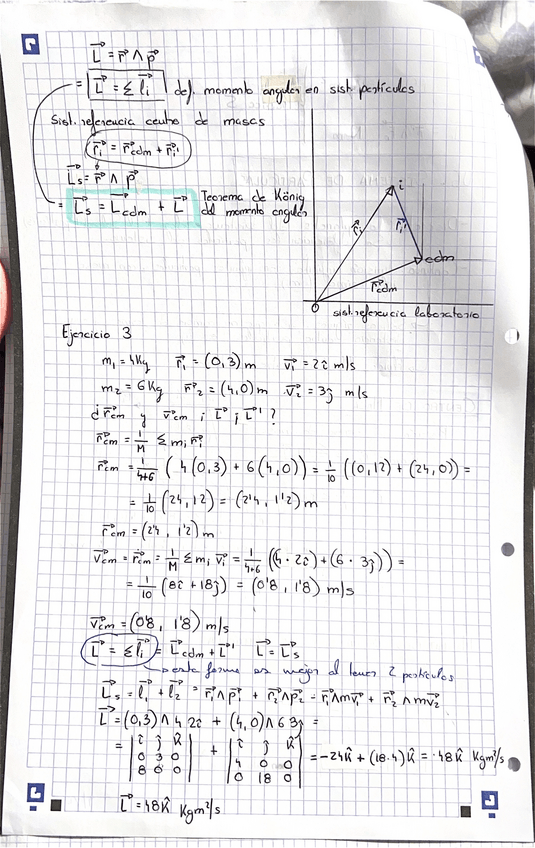 L⃗ = r⃗ ∧ p⃗
= L⃗ = Σ l⃗i def. momento angular en sist. partículas
Sist. referencia centro de masas
r⃗i = r⃗cdm + r⃗i'
L⃗s = r⃗ ∧ p⃗
= L⃗s = L⃗cdm + L⃗' Teorema de König
del momento angular
i
r⃗i
r⃗i'
cdm
r⃗cdm
O
sist. referencia laboratorio
Ejercicio 3
m1 = 4Kg r⃗1 = (0,3) m v⃗1 = 2î m/s
m2 = 6Kg r⃗2 = (4,0) m v⃗2 = 3ĵ m/s
¿ r⃗cm y v⃗cm ; L⃗ ; L⃗' ?
r⃗cm = 1/M Σ mi r⃗i
r⃗cm = 1/4+6 ( 4(0,3) + 6(4,0)) = 1/10 ((0,12) + (24,0)) =
= 1/10 (24,12) = (2'4, 1'2) m
r⃗cm = (2'4, 1'2) m
v⃗cm = r⃗cm = 1/M Σ mi v⃗i = 1/4+6 ((4 · 2î) + (6 · 3ĵ)) =
= 1/10 (8î + 18ĵ) = (0'8, 1'8) m/s
v⃗cm = (0'8, 1'8) m/s
L⃗ = Σ l⃗i = L⃗cdm + L⃗' L⃗ = L⃗s
esta forma es mejor al tener 2 partículas
L⃗s = l⃗1 + l⃗2 = r⃗1 ∧ p⃗1 + r⃗2 ∧ p⃗2 = r⃗1 ∧ mv⃗1 + r⃗2 ∧ mv⃗2
L⃗ = (0,3) ∧ 4 2î + (4,0) ∧ 6 3ĵ =
= | î ĵ k̂ | + | î ĵ k̂ | = -24k̂ + (18·4)k̂ = 48k̂ Kgm²/s
| 0 3 0 | | 4 0 0 |
| 8 0 0 | | 0 18 0 |
L⃗ = 48k̂ Kgm²/s